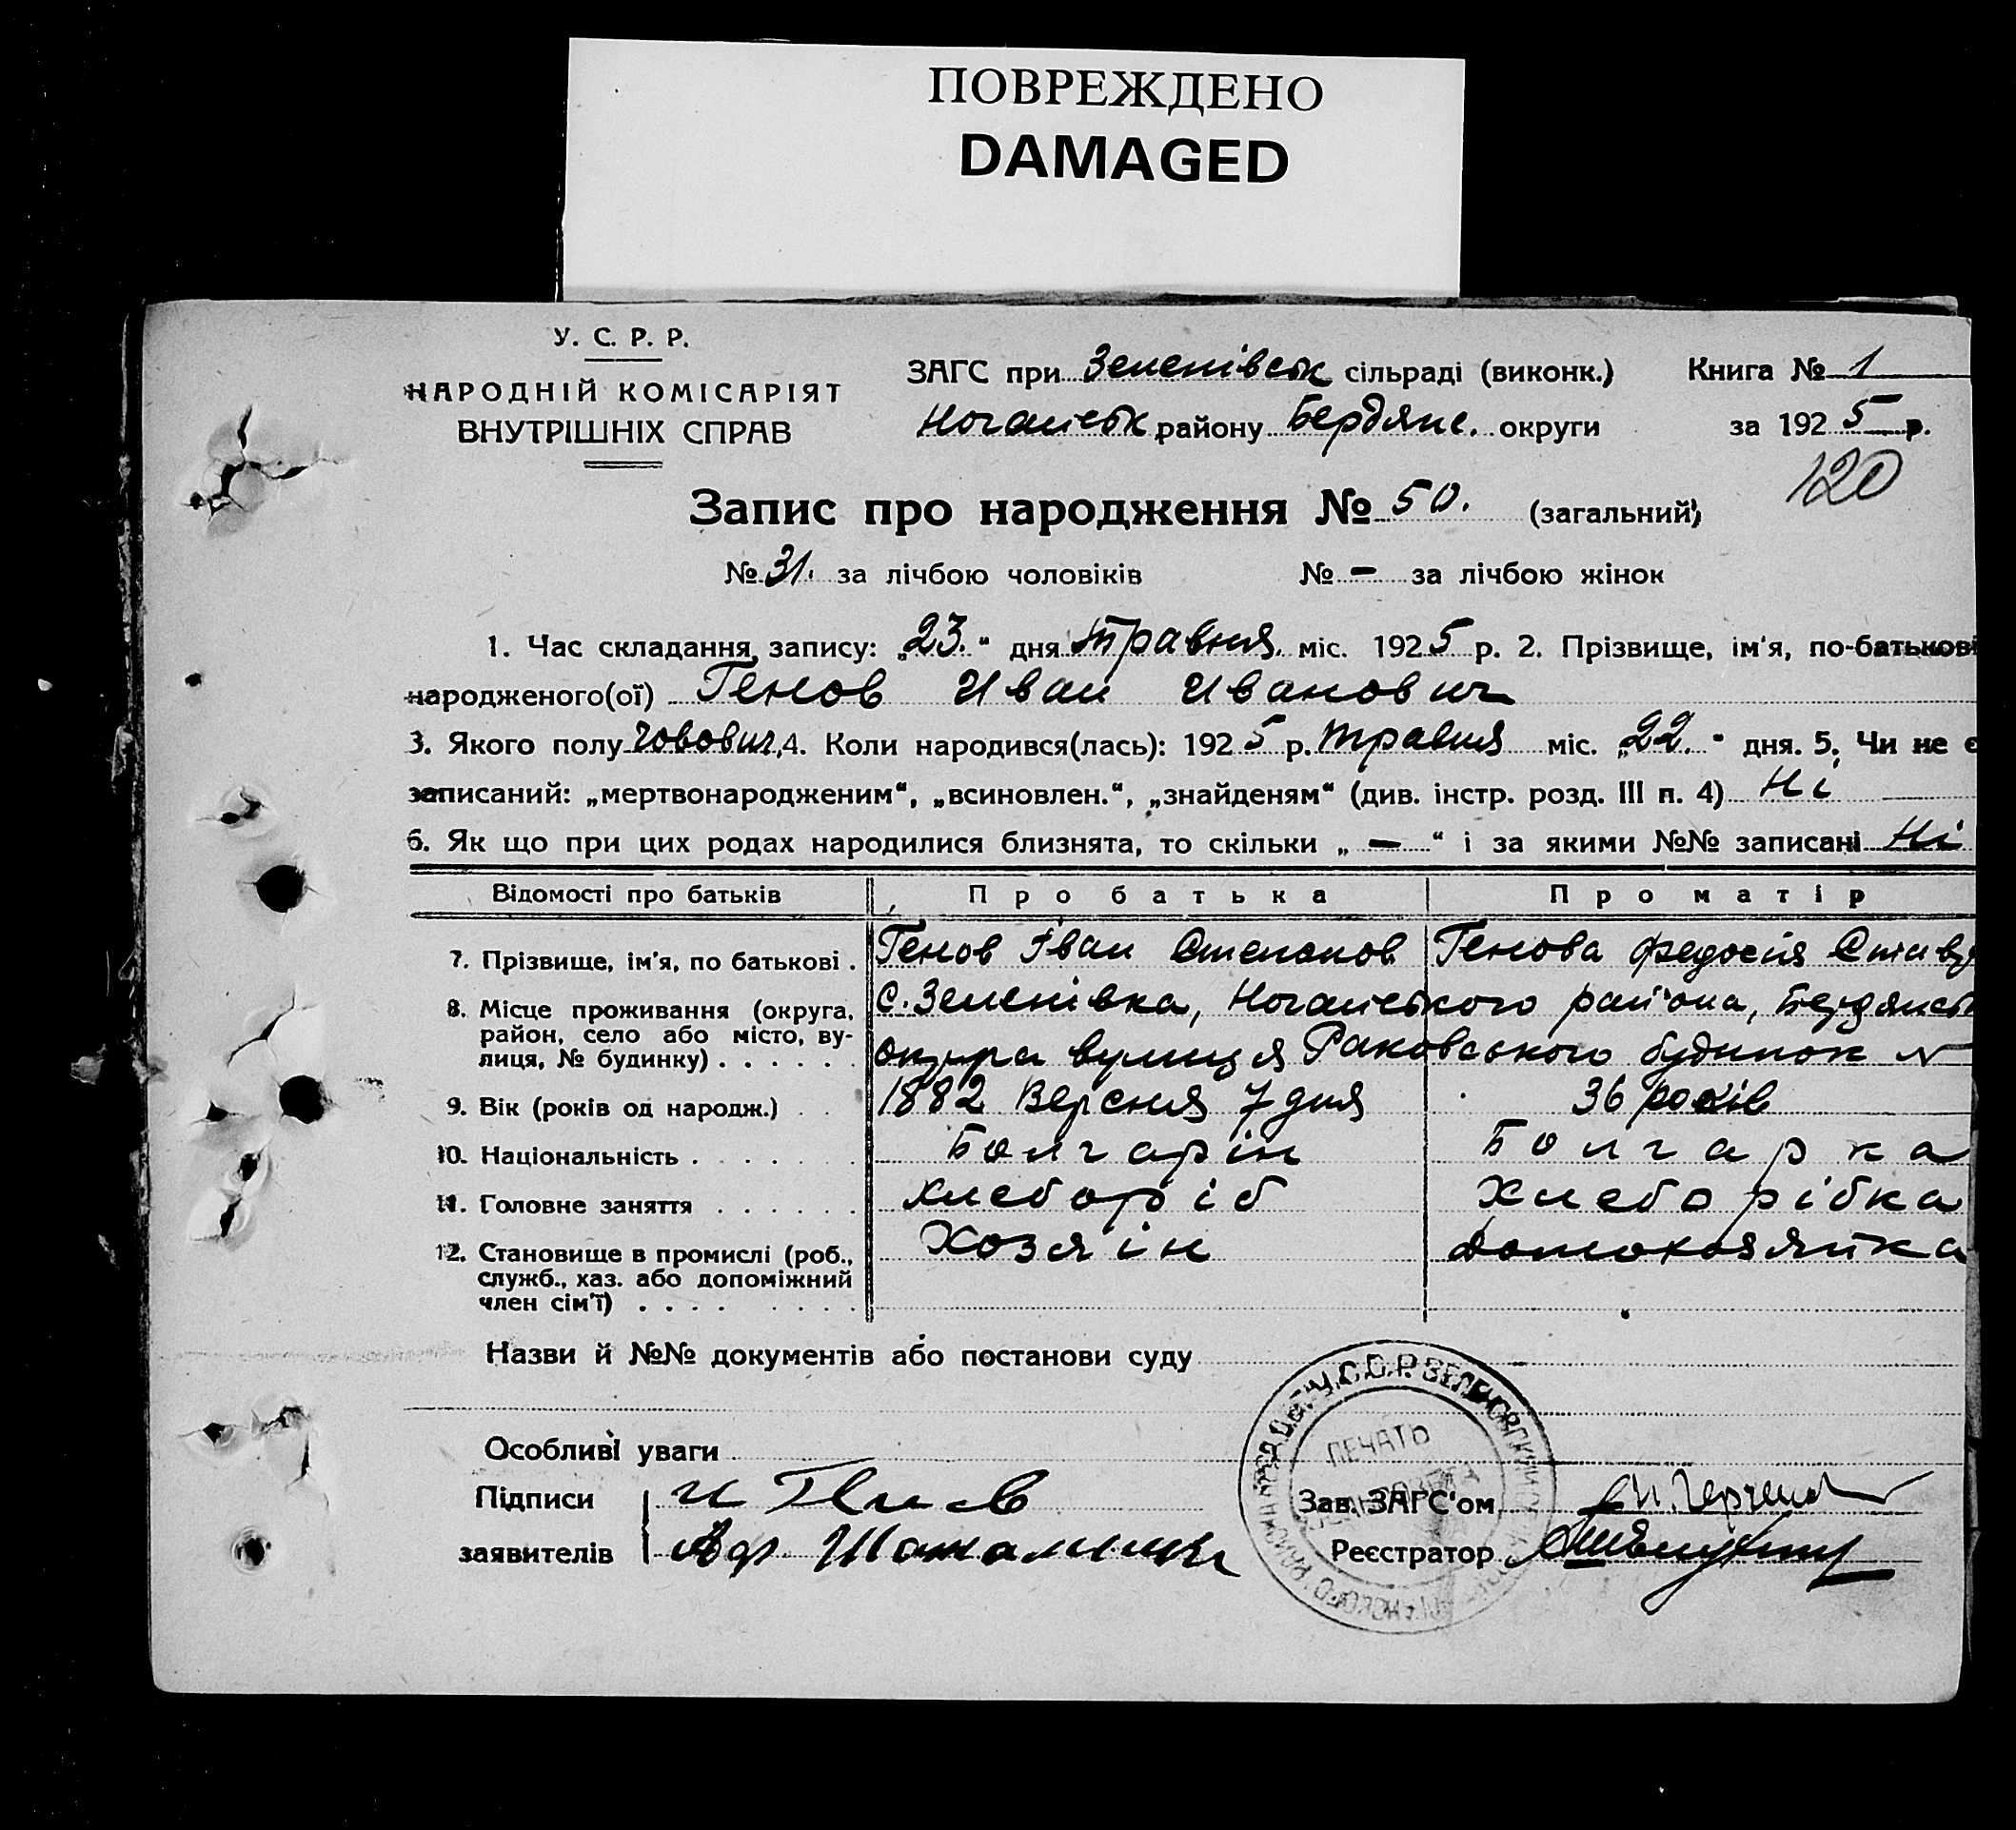 ПОВРЕЖДЕНО
DAMAGED
У. С. Р. Р.
НАРОДНІЙ КОМІСАРІЯТ
ВНУТРІШНІХ СПРАВ
ЗАГС при Зеленівськ сільраді (виконк.) Книга № 1
Ногайськ району Бердянс. округи за 1925 р.
120
Запис про народження № 50. (загальний)
№ 31. за лічбою чоловіків № — за лічбою жінок
1. Час складання запису: „23.“ дня травня міс. 1925 р. 2. Прізвище, ім'я, по-батькові
народженого(ої) Генов Иван Иванович
3. Якого полу човович, 4. Коли народився(лась): 1925 р. травня міс. „22.“ дня. 5. Чи не є
записаний: „мертвонародженим“, „всиновлен.“, „знайденям“ (див. інстр. розд. III п. 4) Ні
6. Як що при цих родах народилися близнята, то скільки „ — “ і за якими №№ записані Ні
Відомості про батьків Про батька Про матір
7. Прізвище, ім'я, по батькові . Генов Іван Степанов Генова Федосія
8. Місце проживання (округа, район, село або місто, ву-
лиця, № будинку) . . . . . .
с. Зеленівка, Ногайського район'а, Бердянськ
округа вулиця Раковського будинок N
9. Вік (років од народж.) . . 1882 Версня 7 дня 36 років
10. Національність . . . . . . Болгарін Болгарка
11. Головне заняття . . . . . . хлеборіб Хлеборібка
12. Становище в промислі (роб., Хозяін Домохозяйка
служб., хаз. або допоміжний
член сім'ї) . . . . . . . .
Назви й №№ документів або постанови суду
Особливі уваги
Підписи И Генов Зав. ЗАГС'ом
заявителів Реєстратор
У.С.С.Р. ЗЕЛЕНОВСКИЙ
ПЕЧАТЬ